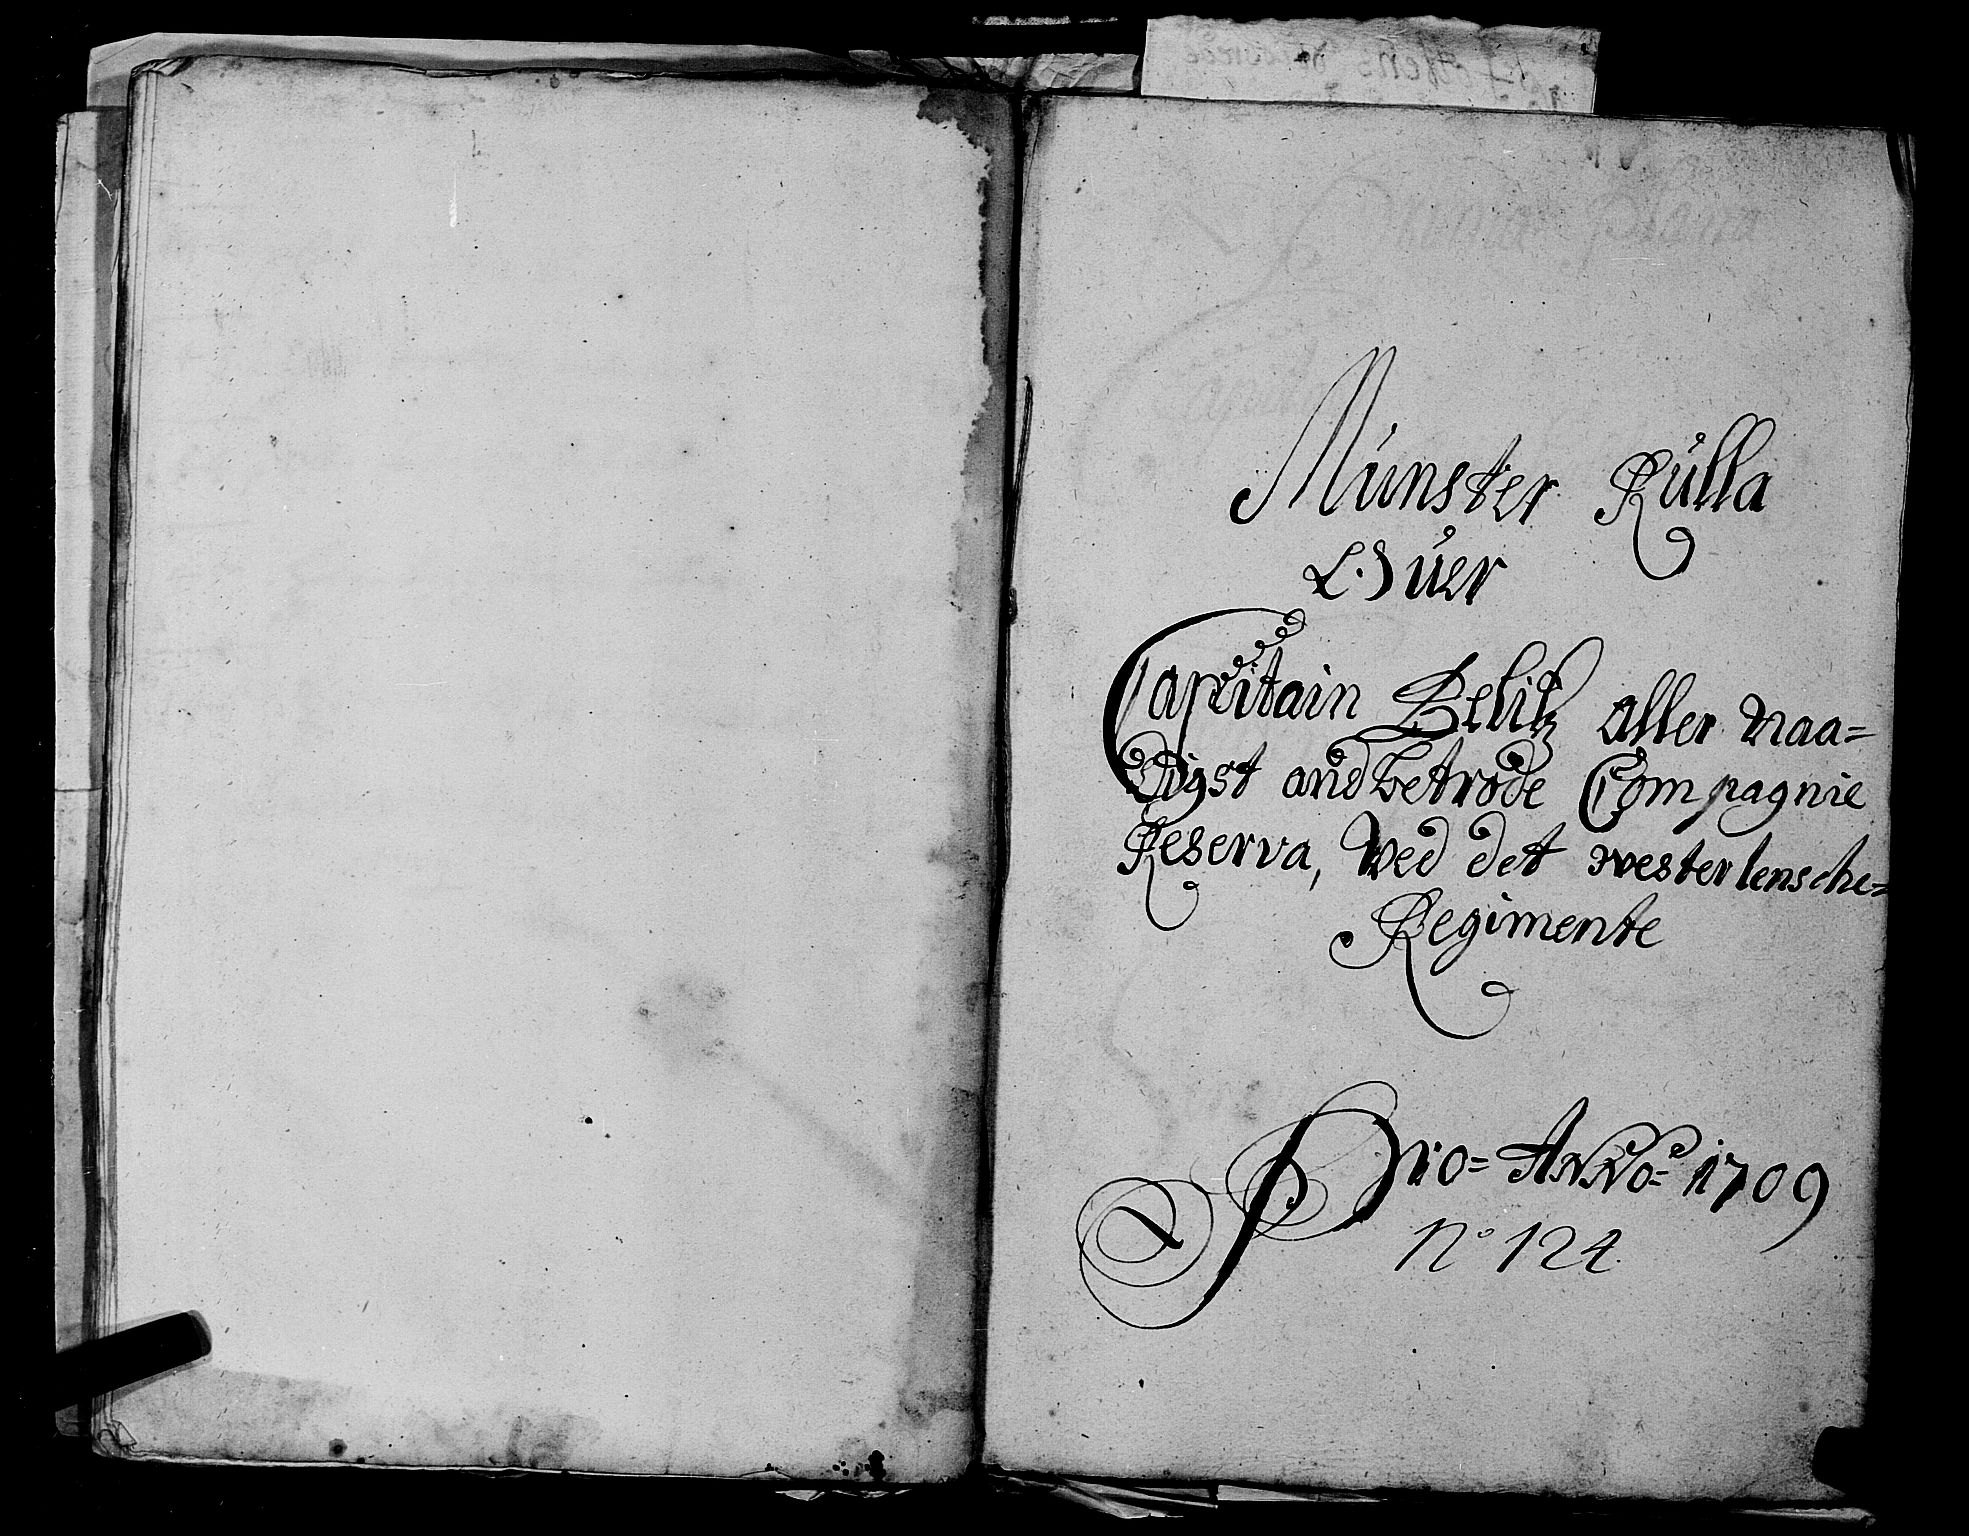 Münster Rulla
Ofuer
Capitain Belitz aller naa=
digst andbetrode Compagnie
Reserva, Wed det westerlensche=
Regimente
Pro= Anno= 1709
No 124